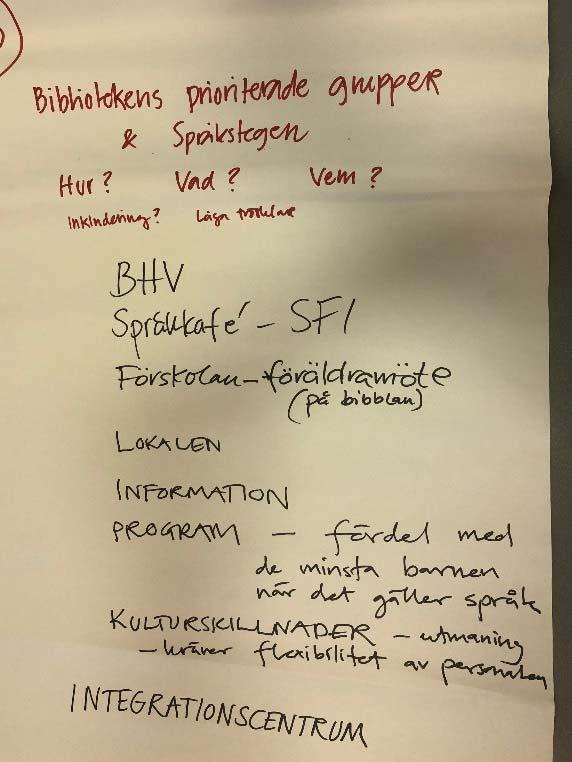 Bibliotekens prioriterade grupper
& Språkstegen
Hur? Vad? Vem?
Inkludering? Låga trösklar
BHV
Språkkafé - SFI
Förskolan - föräldramöte
(på bibblan)
LOKALEN
INFORMATION
PROGRAM - fördel med
de minsta barnen
när det gäller språk
KULTURSKILLNADER - utmaning
- kräver flexibilitet av personalen
INTEGRATIONSCENTRUM